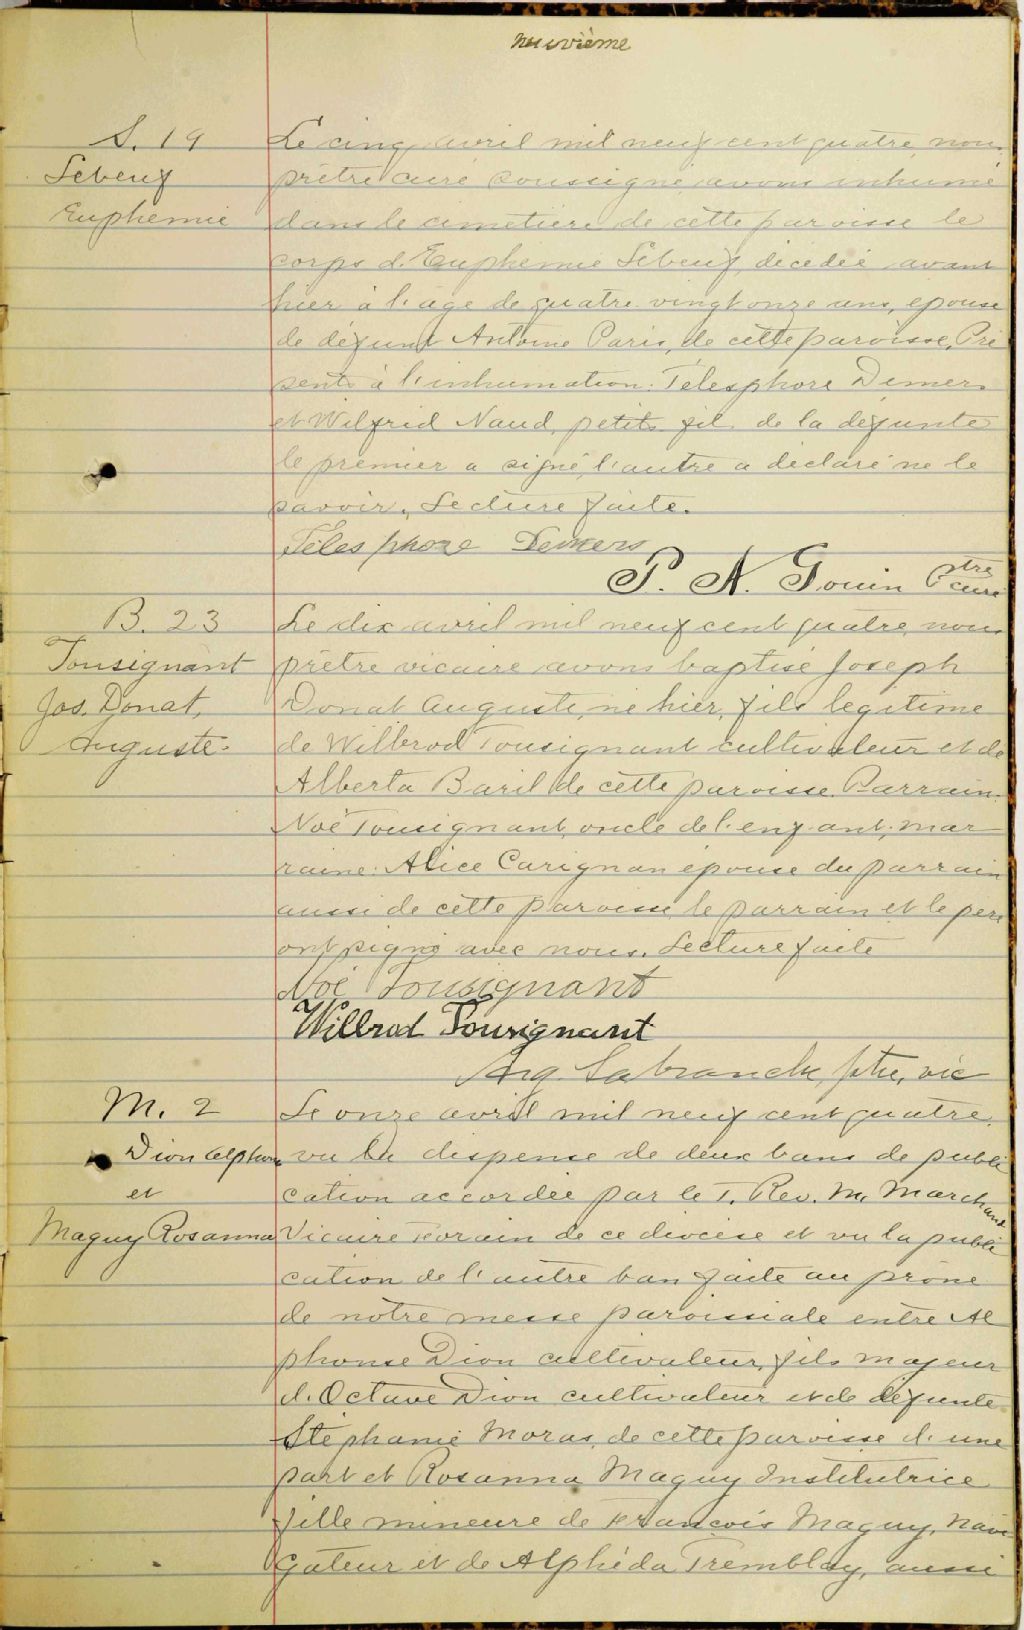 neuvième
S. 19
Lebeuf
Euphemie
Le cinq avril mil neuf cent quatre, nous
prêtre curé soussigné avons inhumé
dans le cimetière de cette paroisse le
corps d'Euphemie Lebeuf, décédée avant
hier à l'age de quatre vingt onze ans, epouse
de défunt Antoine Paris, de cette paroisse, Pré
sents à l'inhumation: Télesphore Demers
et Wilfrid Naud, petits fils de la defunte
le premier a signé, l'autre a déclaré ne le
savoir. Lecture faite.
Télesphore Demers
P. N. Gouin Ptre curé
B. 23
Tousignant
Jos. Donat,
Auguste.
Le dix avril mil neuf cent quatre, nous
prêtre vicaire avons baptisé Joseph
Donat Auguste, né hier, fils legitime
de Wilbrod Tousignant cultivateur et de
Alberta Baril de cette paroisse. Parrain
Noé Tousignant, oncle de l'enfant, mar
raine: Alice Carignan épouse du parrain
aussi de cette paroisse le parrain et le pere
ont signé avec nous. Lecture faite
Noé Tousignant
Willrod Tousignant
Arg. Labranche, ptre, vic
M. 2
Dion Alphonse
et
Maguy Rosanna
Le onze avril mil neuf cent quatre,
vu la dispense de deux bans de publi
cation accordée par le T. Rev. M. Marchand
Vicaire Forain de ce diocèse et vu la publi
cation de l'autre ban faite au prône
de notre messe paroissiale entre Al
phonse Dion cultivateur, fils majeur
d'Octave Dion cultivateur et de défunte
Stéphanie Moras, de cette paroisse d'une
part et Rosanna Maguy Institutrice
fille mineure de François Maguy, Navi
gateur et de Alphéda Tremblay, aussi